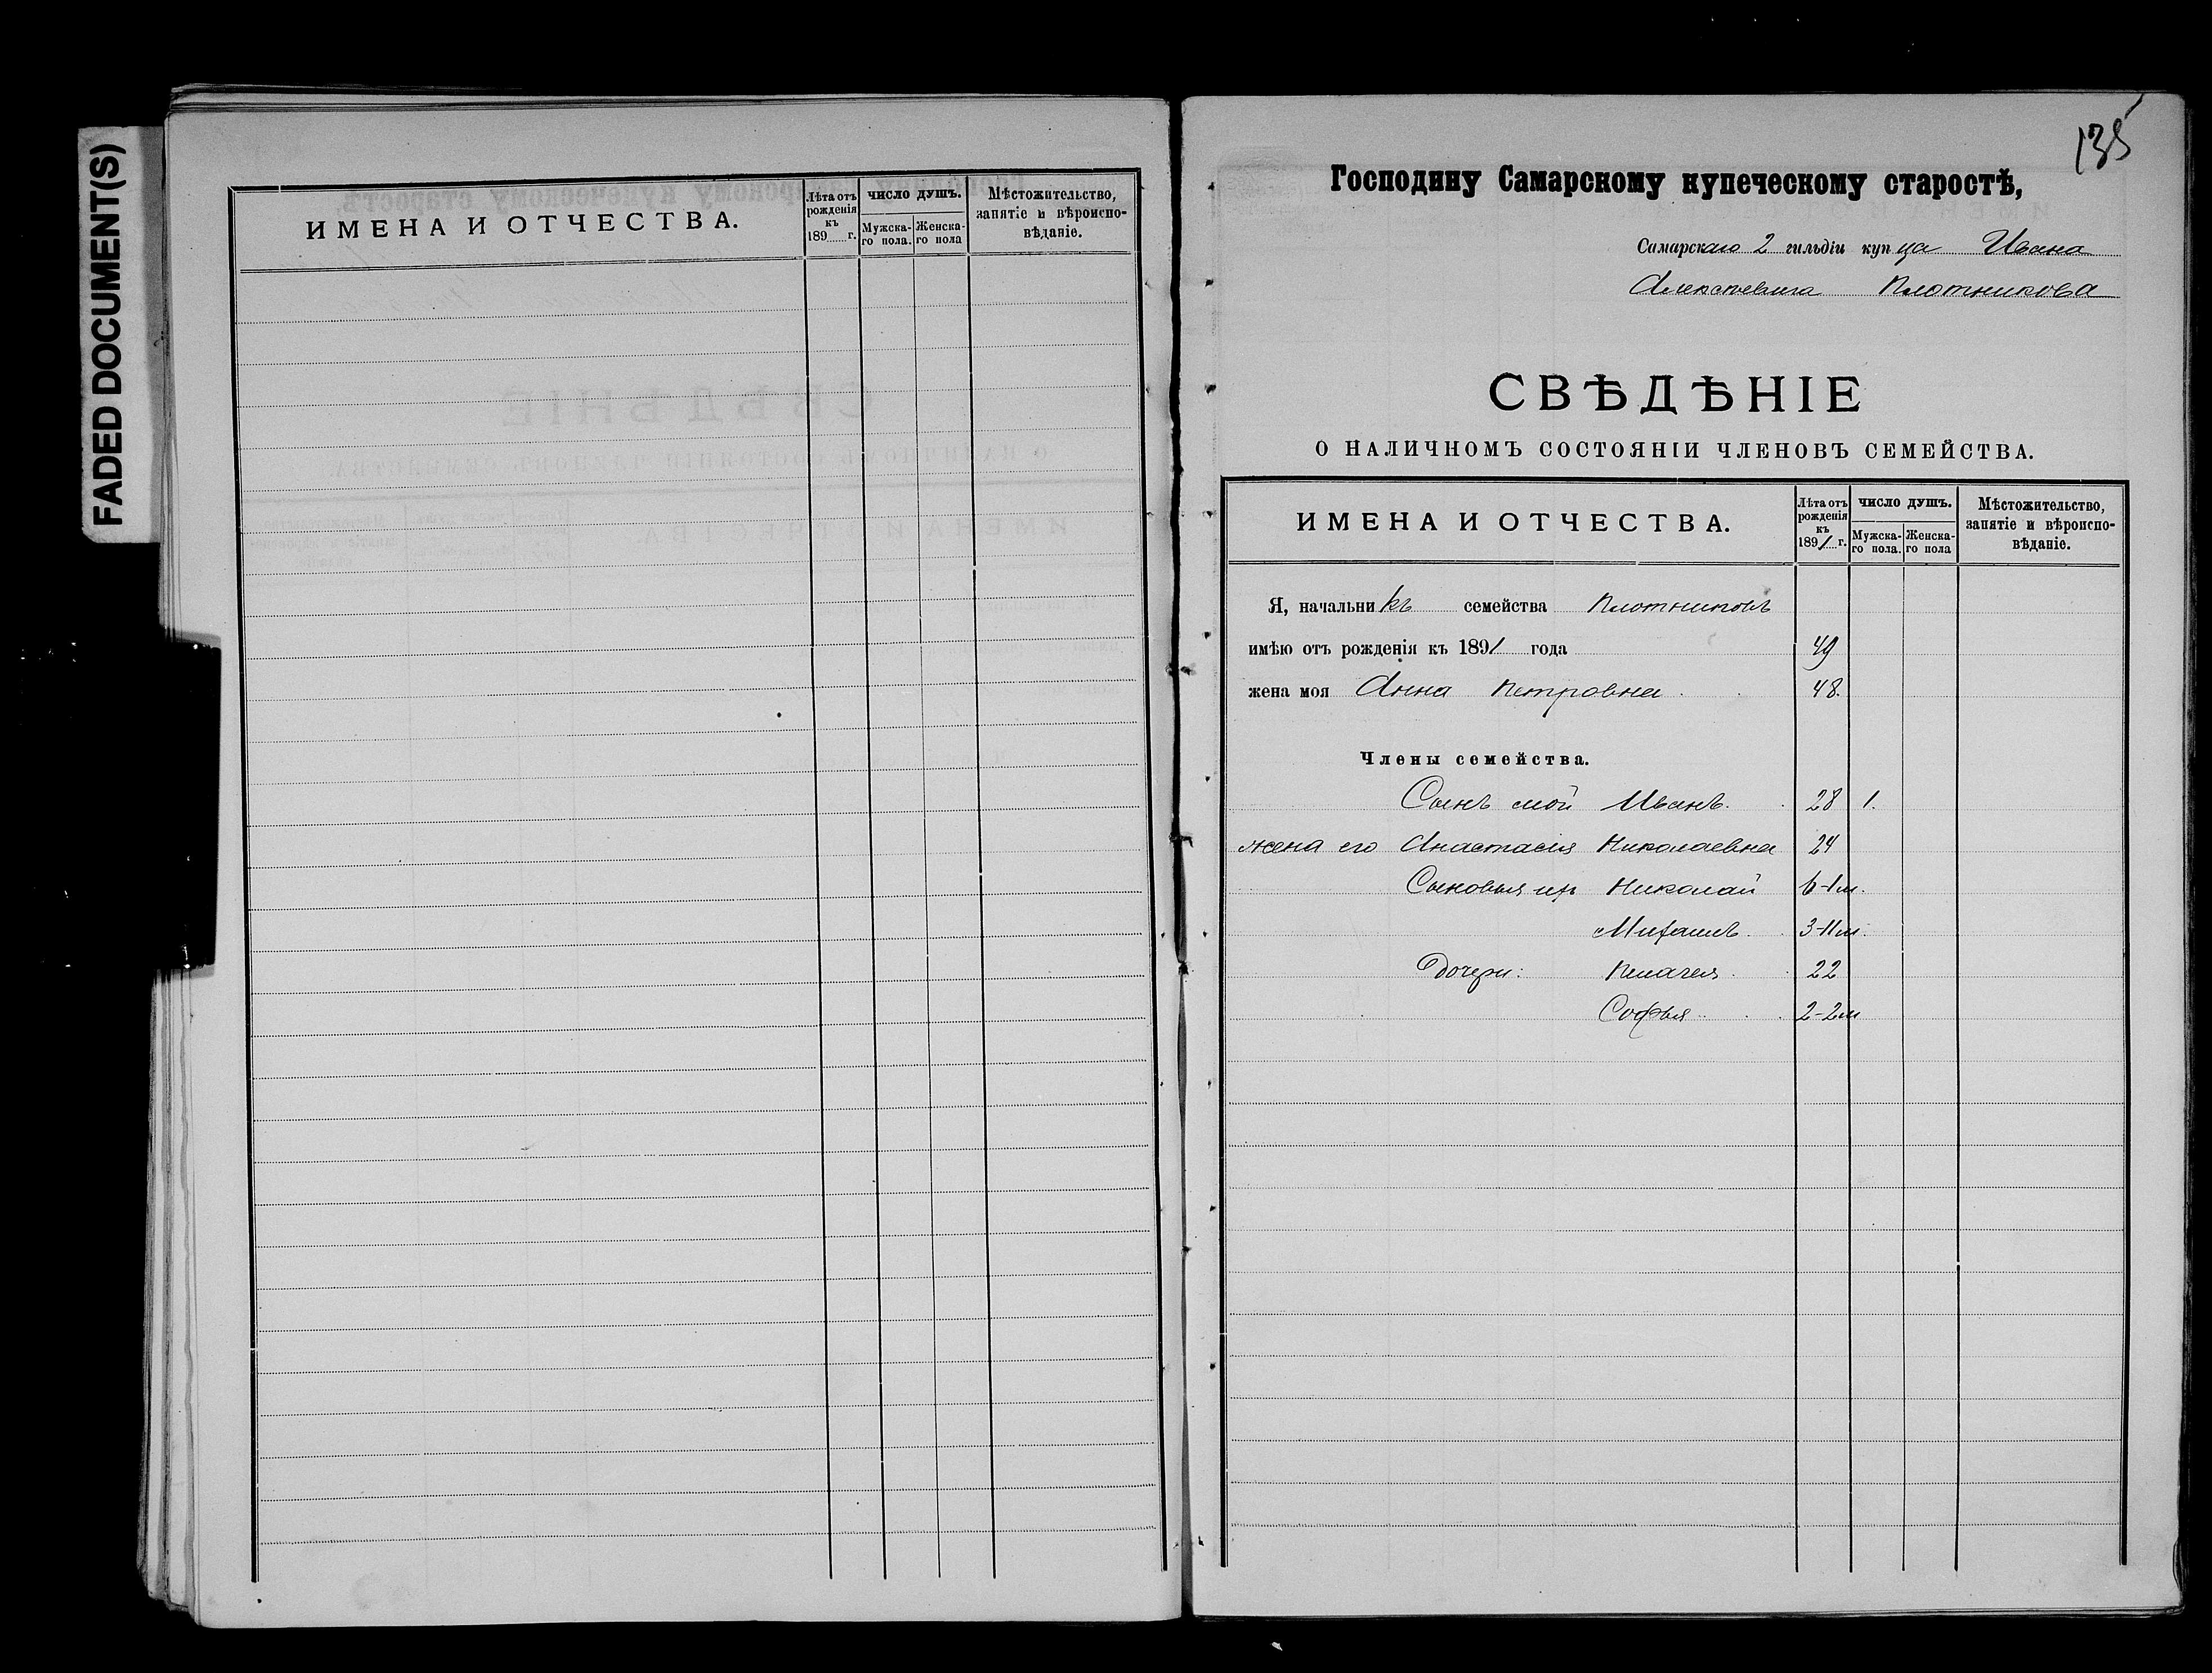 FADED DOCUMENT(S)
ИМЕНА И ОТЧЕСТВА.
Лѣта отъ
рожденія
къ
189 г.
ЧИСЛО ДУШЪ.
Мужска-
го пола.
Женска-
го пола
Мѣстожительство,
занятіе и вѣроиспо-
вѣданіе.
135
Господину Самарскому купеческому старостѣ,
Самарскаго 2 гильдіи купца Ивана
Алексѣевича Плотникова
СВѢДѢНІЕ
О НАЛИЧНОМЪ СОСТОЯНІИ ЧЛЕНОВЪ СЕМЕЙСТВА.
ИМЕНА И ОТЧЕСТВА.
Лѣта отъ
рожденія
къ
1891 г.
ЧИСЛО ДУШЪ.
Мужска-
го пола.
Женска-
го пола
Мѣстожительство,
занятіе и вѣроиспо-
вѣданіе.
Я, начальникъ семейства Плотниковъ
имѣю отъ рожденія къ 1891 года 49
жена моя Анна Петровна 48.
Члены семейства.
Сынъ мой Иванъ. 28 1.
жена его Анастасія Николаевна 24
Сыновья их Николай 6-1м.
Михаилъ. 3-11м.
Дочери: Пелагея 22
Софья 2-2м